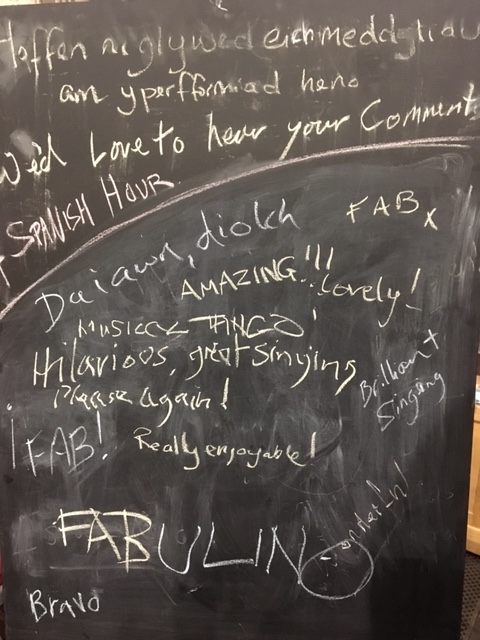 Hoffen ni glywed eich meddyliau
am y perfformiad heno
We'd Love to hear your Comments
SPANISH HOUR
FAB x
Da iawn, diolch
AMAZING!!!
Lovely!
MUSICAL TANGO
Hilarious, great singing
Please again!
Brilliant
Singing
FAB!
Really enjoyable!
FABULINO
Bravo